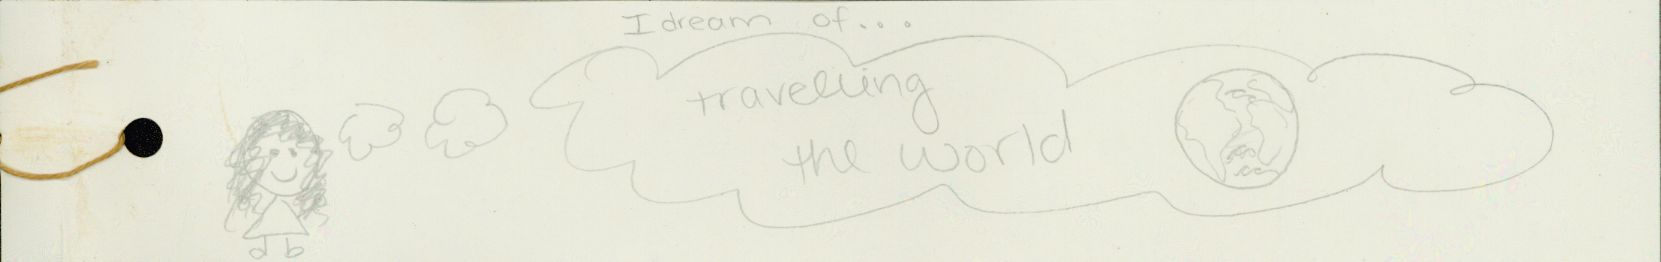 I dream of...
travelling
the world